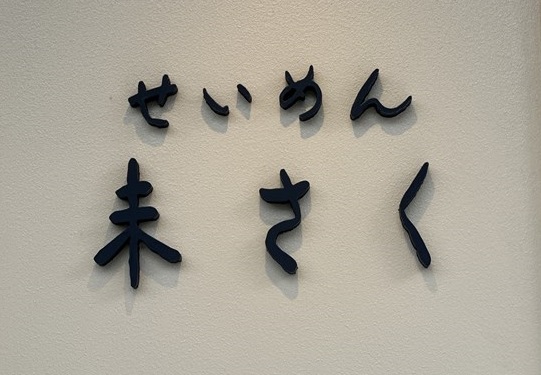 せいめん
未さく